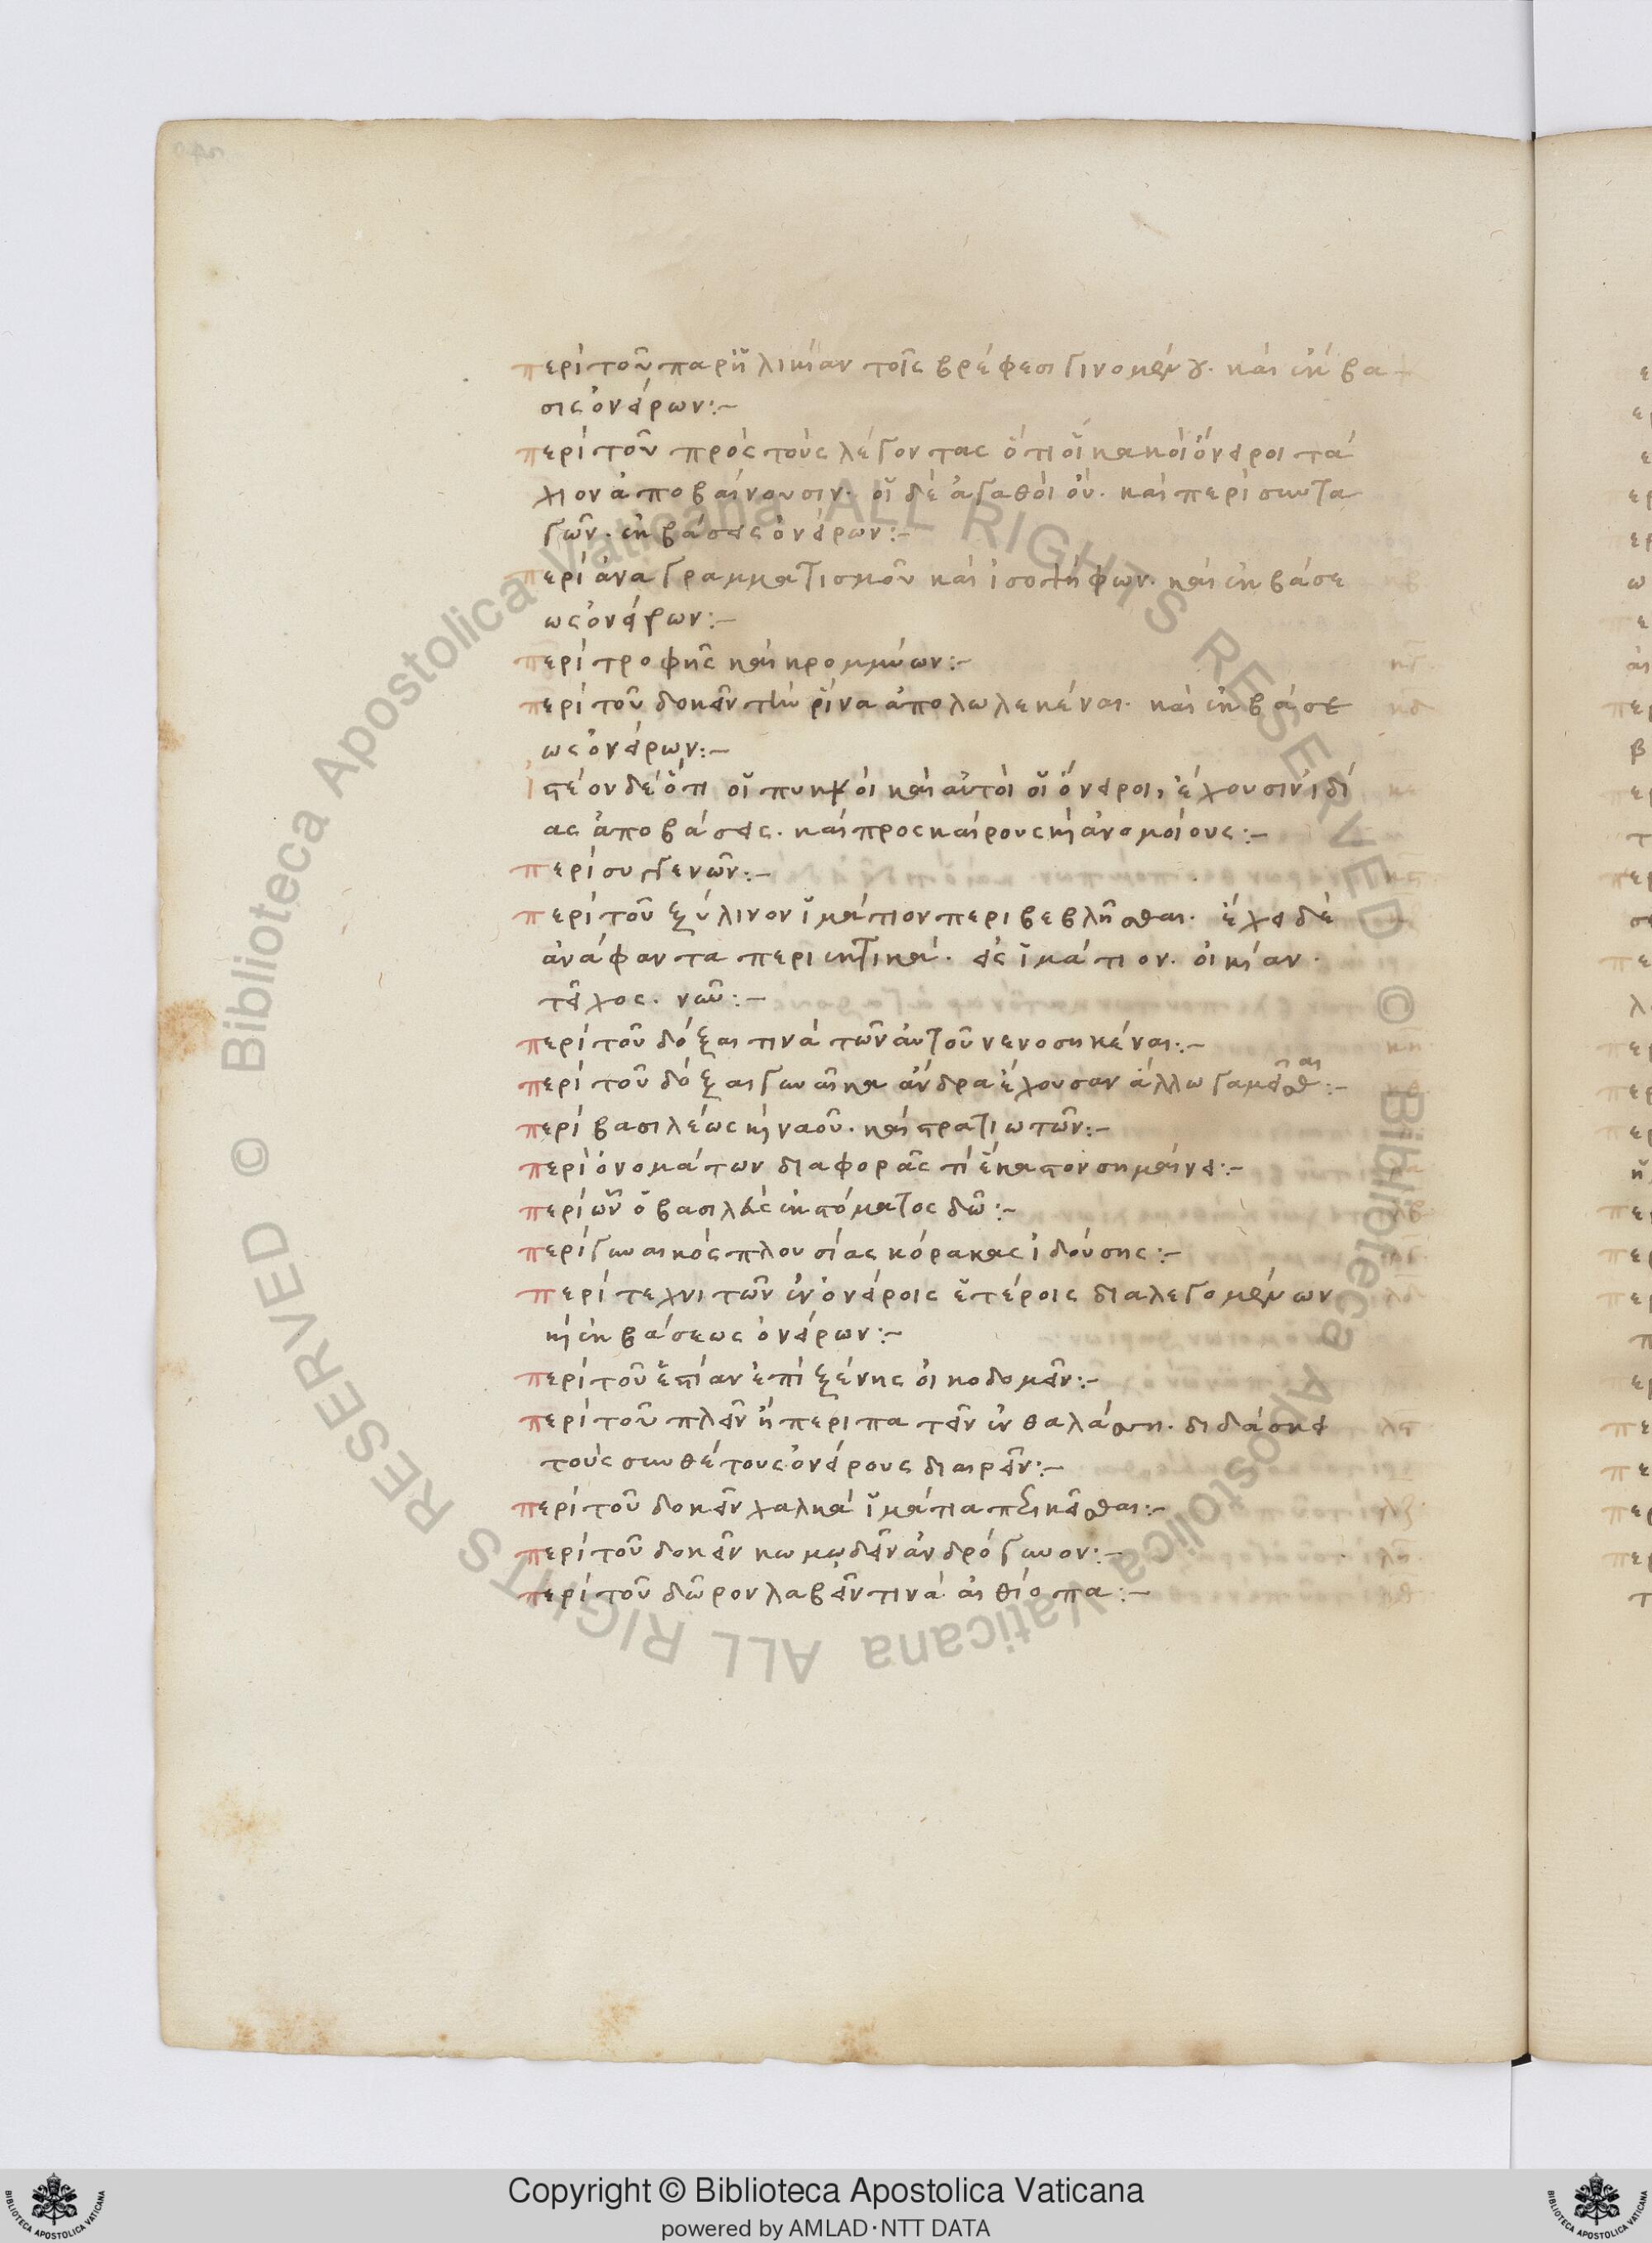 περὶ τοῦ παρ' ἡλικίαν τοῖς βρέφεσι γινομένου. καὶ ἐκβα-
σις ὀνείρων:-
περὶ τοῦ πρὸς τοὺς λέγοντας ὅτι οἱ κακοὶ ὄνειροι τά
χιον ἀποβαίνουσιν. οἱ δὲ ἀγαθοὶ οὔ. καὶ περὶ συντα
γῶν. ἐκβάσεις ὀνείρων:-
περὶ ἀναγραμματισμοῦ καὶ ἰσοψήφων. καὶ ἐκβάσε
ως ὀνείρων:-
περὶ τροφῆς καὶ κρομμύων:-
περὶ τοῦ δοκεῖν τὴν ῥῖνα ἀπολωλεκέναι. καὶ ἐκβάσε
ως ὀνείρων:-
ἰστέον δὲ ὅτι οἱ πυκνοὶ καὶ αὐτοὶ οἱ ὄνειροι, ἔχουσιν ἰδί
ας ἀποβάσεις. καὶ προς καίρους καὶ ἀνομοίους:-
περὶ συγγενῶν:-
περὶ τοῦ ξύλινον ἱμάτιον περιβεβλῆσθαι. ἔχει δὲ
ἀνάφαντα περιεκτικά. εἰς ἱμάτιον. οἰκίαν.
τεῖχος. ναῦν:-
περὶ τοῦ δόξαι τινὰ τῶν αὐτοῦ νενοσηκέναι:-
περὶ τοῦ δόξαι γυναῖκα ἄνδρα ἔχουσαν ἄλλω γαμεῖσθαι:-
περὶ βασιλέως καὶ ναοῦ. καὶ στρατιωτῶν:-
περὶ ὀνομάτων διαφορᾶς τί ἕκαστον σημαίνει:-
περὶ ὧν ὁ βασιλεὺς ἐκ στόματος δῶ:-
περὶ γυναικὸς πλουσίας κόρακας ἰδούσης:-
περὶ τεχνιτῶν ἐν ὀνείροις ἑτέροις διαλεγομένων
καὶ ἐκβάσεως ὀνείρων:-
περὶ τοῦ ἑστίαν ἐπὶ ξένης οἰκοδομεῖν:-
περὶ τοῦ πλεῖν ἢ περιπατεῖν ἐν θαλάσση. διδάσκει
τοὺς συνθέτους ὀνείρους διαιρεῖν:-
περὶ τοῦ δοκεῖν χαλκᾶ ἱμάτια περικεῖσθαι:-
περὶ τοῦ δοκεῖν κωμωδεῖν ἀνδρόγυνον:-
περὶ τοῦ δῶρον λαβεῖν τινὰ αἰθίοπα:-
© Biblioteca Apostolica Vaticana ALL RIGHTS RESERVED © Biblioteca Apostolica Vaticana ALL RIGHTS RESERVED
Copyright © Biblioteca Apostolica Vaticana
powered by AMLAD·NTT DATA
BIBLIOTECA APOSTOLICA VATICANA
BIBLIOTECA APOSTOLICA VATICANA